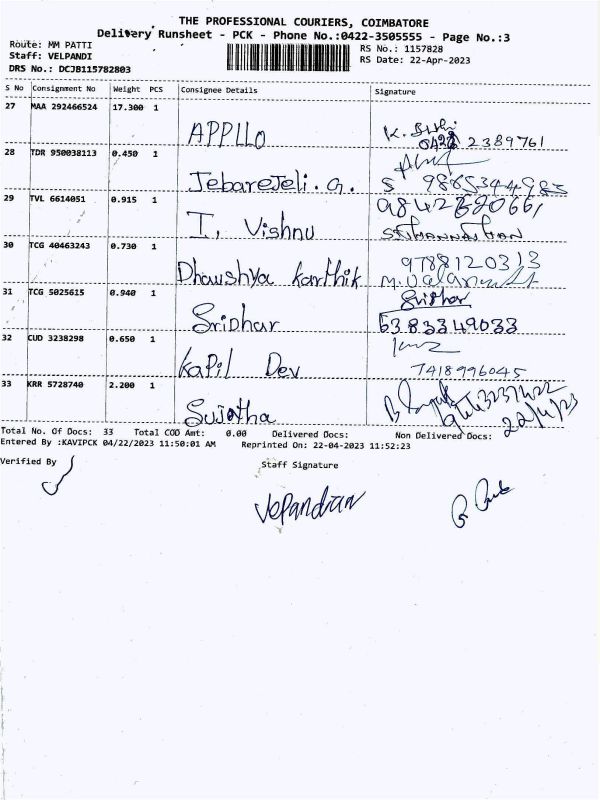 THE PROFESSIONAL COURIERS, COIMBATORE
Delivery Runsheet - PCK - Phone No.:0422-3505555 - Page No.:3
Route: MM PATTI
RS No.: 1157828
Staff: VELPANDI
RS Date: 22-Apr-2023
DRS No.: DCJB115782803
S No Consignment No Weight PCS Consignee Details Signature
27 MAA 292466524 17.300 1 APPllO
2389761
28 TDR 950038113 0.450 1 Jebarejeli. G.
29 TVL 6614051 0.915 1 I, Vishnu
30 TCG 40463243 0.730 1 Dhaushya Karthik 9788120313
31 TCG 5025615 0.940 1 Sridhar Sridhar
6383349033
32 CUD 3238298 0.650 1 Kapil Dev
7418996045
33 KRR 5728740 2.200 1 Sujatha
22/4/23
Total No. Of Docs: 33 Total COD Amt: 0.00 Delivered Docs: Non Delivered Docs:
Entered By :KAVIPCK 04/22/2023 11:50:01 AM Reprinted On: 22-04-2023 11:52:23
Verified By
Staff Signature
Velpandian